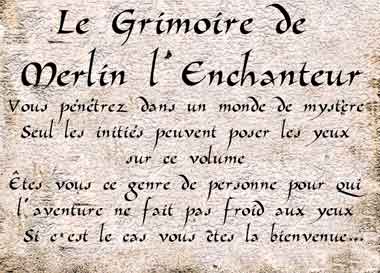 Le Grimoire de
Merlin l'Enchanteur
Vous pénétrez dans un monde de mystère
Seul les initiés peuvent poser les yeux
sur ce volume
Êtes vous ce genre de personne pour qui
l'aventure ne fait pas froid aux yeux
Si c'est le cas vous êtes la bienvenue...